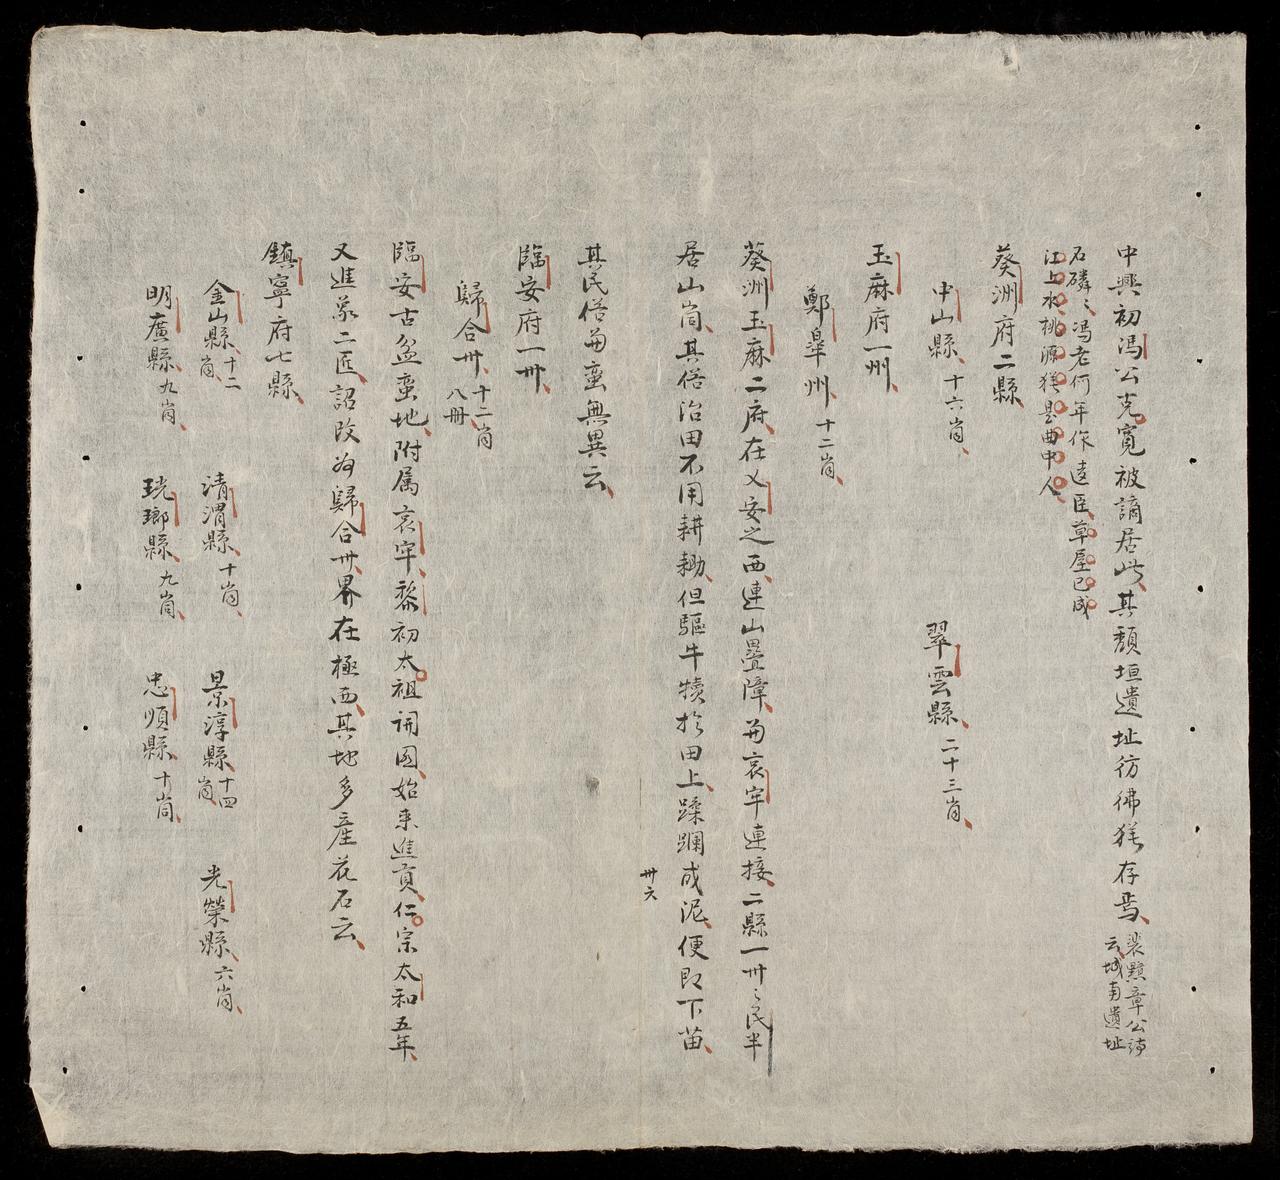 中興初馮公克寬被謫居此其頹垣遺址彷彿猶存焉裴黯章公詩
云城南遺址
石磷〻馮老何年作遠臣草屋已成
江上水桃源猶是曲中人
葵洲府二縣
中山縣十六峝 翠雲縣二十三峝
玉麻府一州
鄭皐州十二峝
葵洲玉麻二府在乂安之西連山疊障與哀牢連接二縣一卅〻民半
居山峝其俗治田不用耕耡但驅牛犢於田上蹂躙成泥便即下苗
卅六
其民俗與蛮無異云
臨安府一卅
歸合卅十二峝
八冊
臨安古盆蛮地附属哀牢黎初太祖開国始来進貢仁宗太和五年
又進象二匹詔改為歸合卅界在極西其地多產花石云
鎮寧府七縣
金山縣十二峝 清渭縣十峝 景淳縣十四峝 光榮縣六峝
明廣縣九峝 珖瑯縣九峝 忠順縣十峝